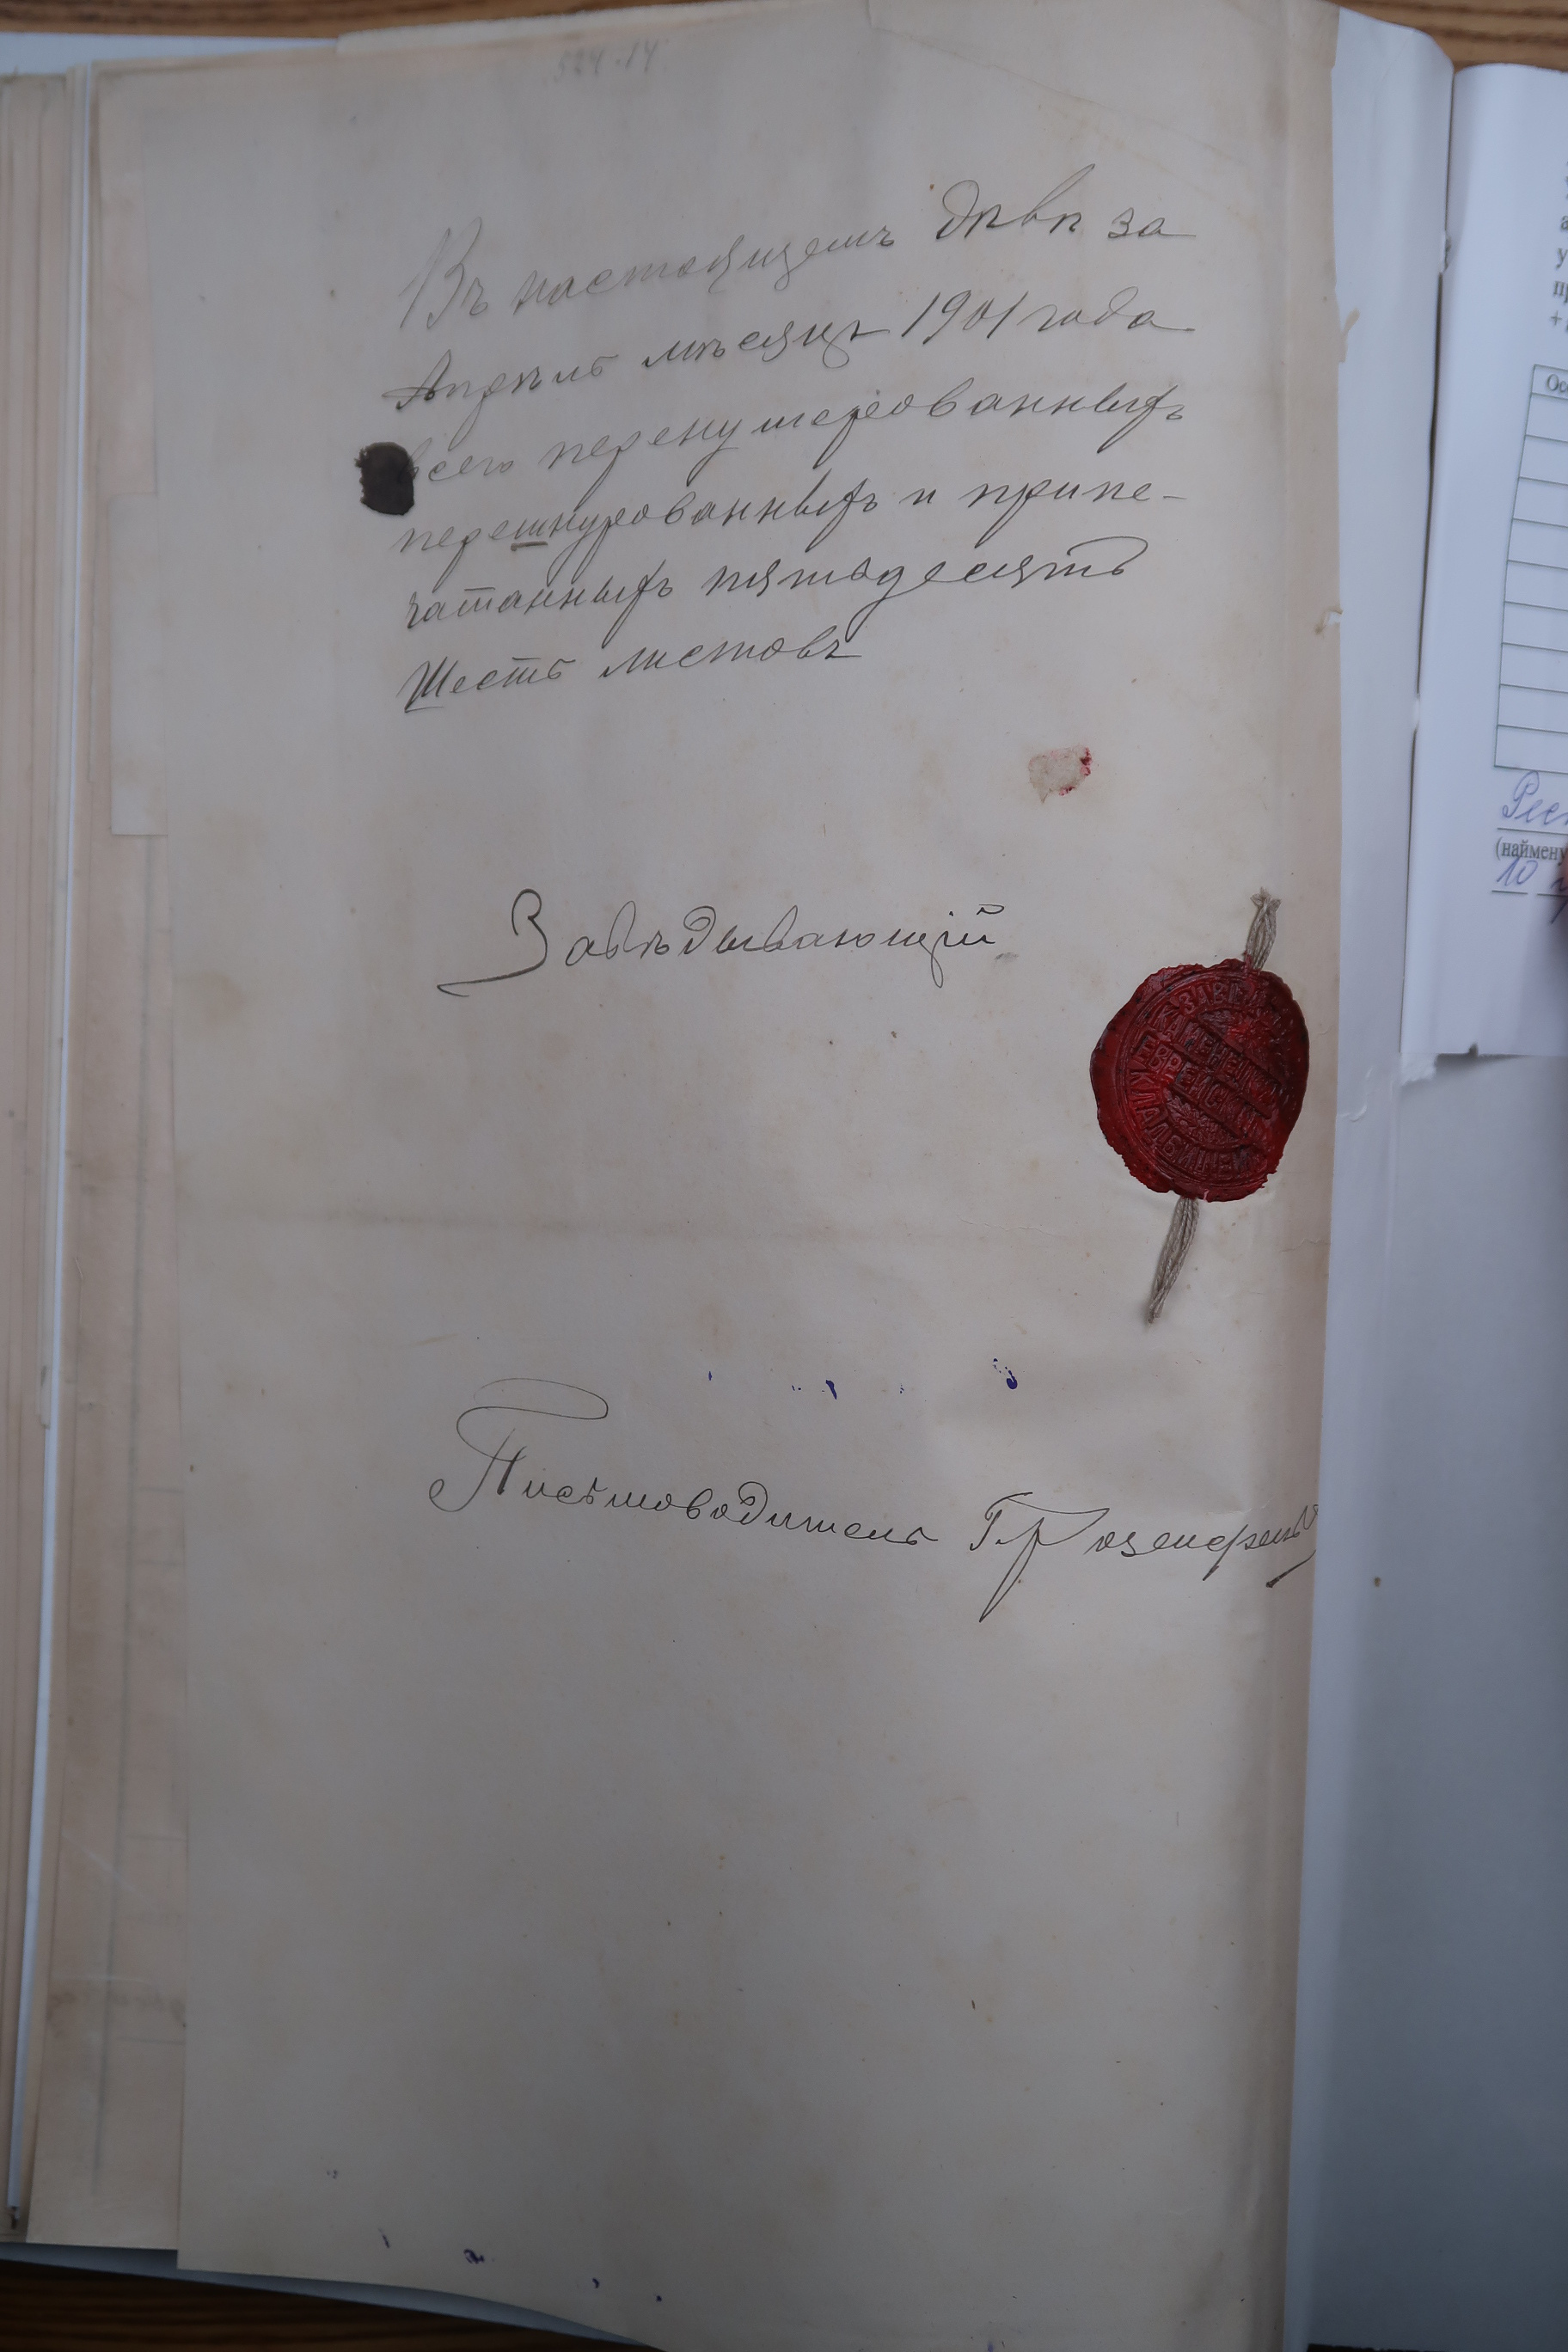 524.14
Въ настоящемъ дѣлѣ за
Апрѣль мѣсяцъ 1901 года
всего перенумерованныхъ
перешнурованныхъ и припе-
чатанныхъ пятьдесятъ
Шесть листовъ
Завѣдывающій
ЗАВѢД
КАМЕНЕЦК
ЕВРЕЙСКИМ
КЛАДБИЩЕМ
Письмоводитель Г. Розенфельд
Ос
(наймену
10